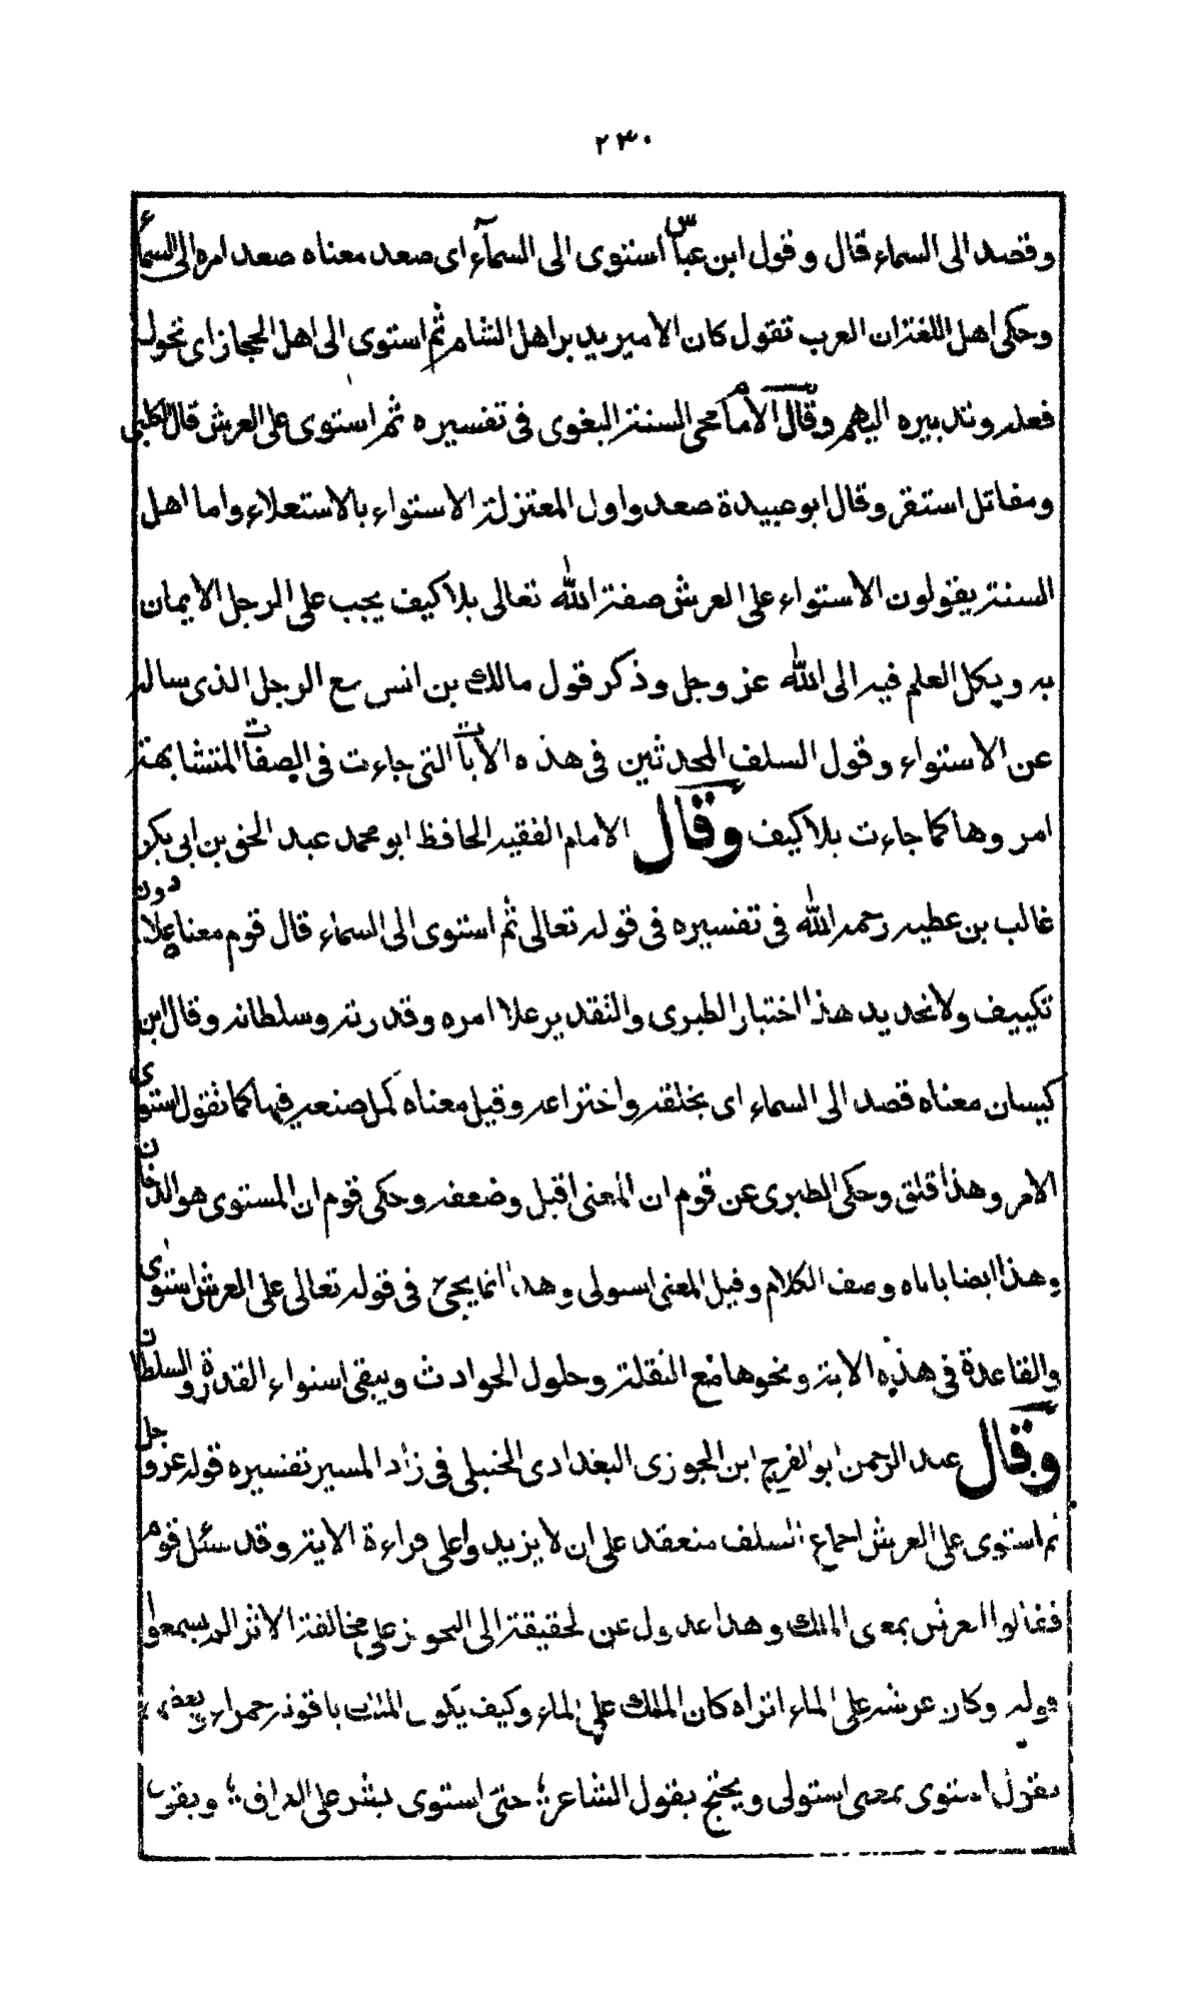 ٢٣٠
وقصد الى السماء قال وقول ابن عباس استوى الى السمآء اى صعد معناه صعد امره الى السماء
وحكى اهل اللغة ان العرب تقول كان الامير يدبر اهل الشام ثم استوى الى اهل الحجاز اى تحول
فعله وتدبيره اليهم وقال الامام محى السنة البغوى فى تفسيره ثم استوى على العرش قال الكلبى
ومقاتل استقر وقال ابو عبيدة صعد واول المعتزلة الاستواء بالاستعلاء واما اهل
السنة يقولون الاستواء على العرش صفة الله تعالى بلا كيف يجب على الرجل الايمان
به ويكل العلم فيه الى الله عز وجل وذكر قول مالك بن انس مع الرجل الذى ساله
عن الاستواء وقول السلف المحدثين فى هذه الايات التى جاءت فى الصفات المتشابهة
امروها كما جاءت بلا كيف وقال الامام الفقيه الحافظ ابو محمد عبد الحق بن ابى بكر
غالب بن عطيه رحمه الله فى تفسيره فى قوله تعالى ثم استوى الى السماء قال قوم معناه علا دون
تكييف ولا تحديد هذا اختيار الطبرى والتقدير علا امره وقدرته وسلطانه وقال ابن
كيسان معناه قصد الى السماء اى بخلقه واختراعه وقيل معناه كمل صنعه فيها كما تقول استوى
الامر وهذا قلق وحكى الطبرى عن قوم ان المعنى اقبل وضعفه وحكى قوم ان المستوى هو الدخان
وهذا ايضا ياباه وصف الكلام وقيل المعنى استولى وهذا انما يجئ فى قوله تعالى على العرش استوى
والقاعدة فى هذه الاية ونحوها منع النقلة وحلول الحوادث ويبقى استواء القدرة والسلطان
وقال عبد الرحمن ابو الفرج ابن الجوزى البغدادى الحنبلى فى زاد المسير تفسيره قوله عز وجل
ثم استوى على العرش اجماع السلف منعقد على ان لا يزيدوا على قراءة الاية وقد سئل قوم
فقالوا العرش بمعنى الملك وهذا عدول عن الحقيقة الى التجوز على مخالفة الاثر الم يسمعوا
قوله وكان عرشه على الماء اتراه كان الملك على الماء وكيف يكون الملك ياقوتة حمراء وبعضهم
يقول استوى بمعنى استولى ويحتج بقول الشاعر ؛ حتى استوى بشر على العراق ؛ وبقول